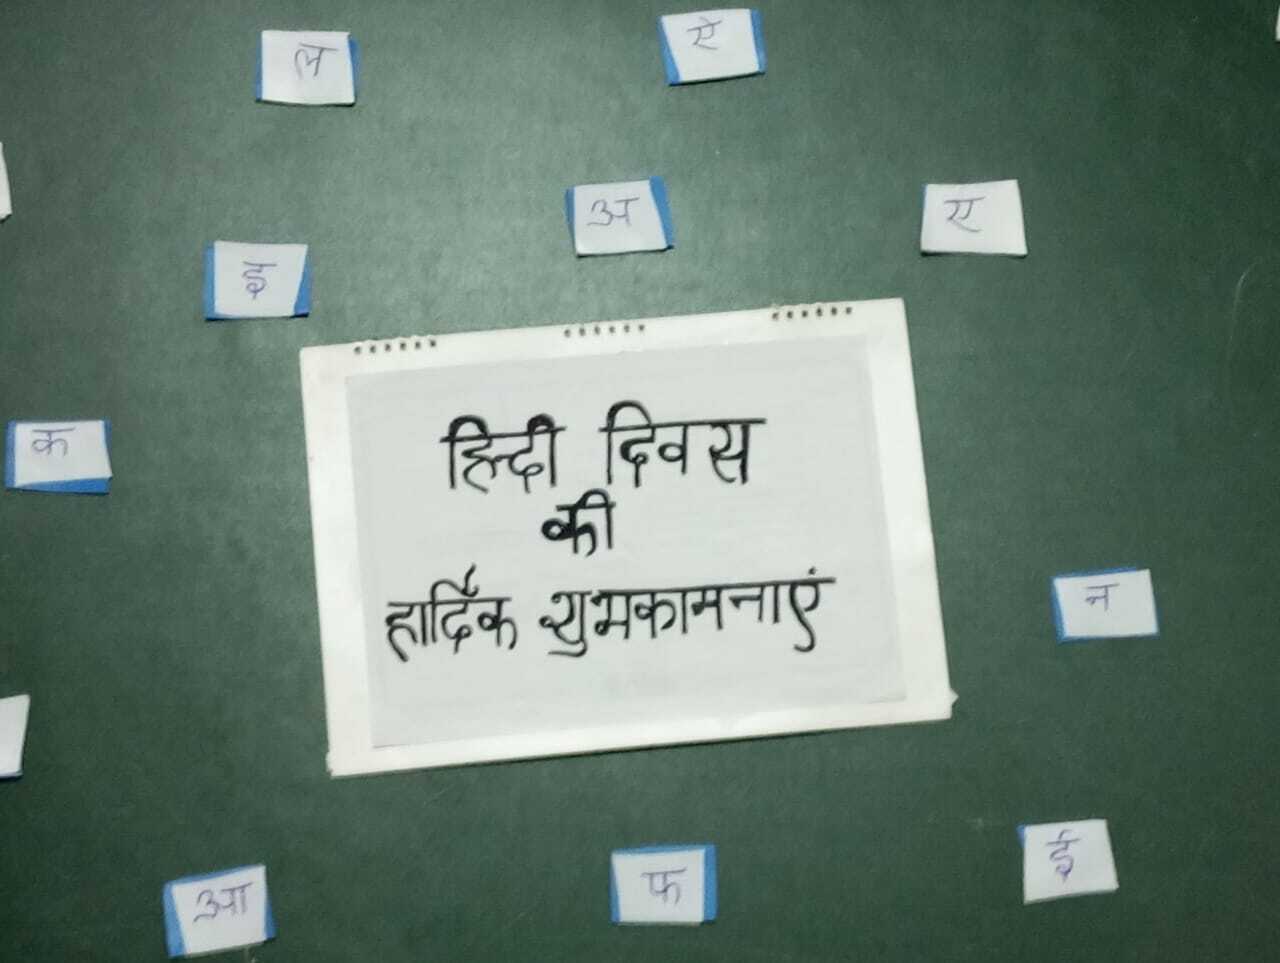 ल
ऐ
अ
ए
ई
क
हिन्दी दिवस
की
हार्दिक शुभकामनाएं
न
आ
फ
ई